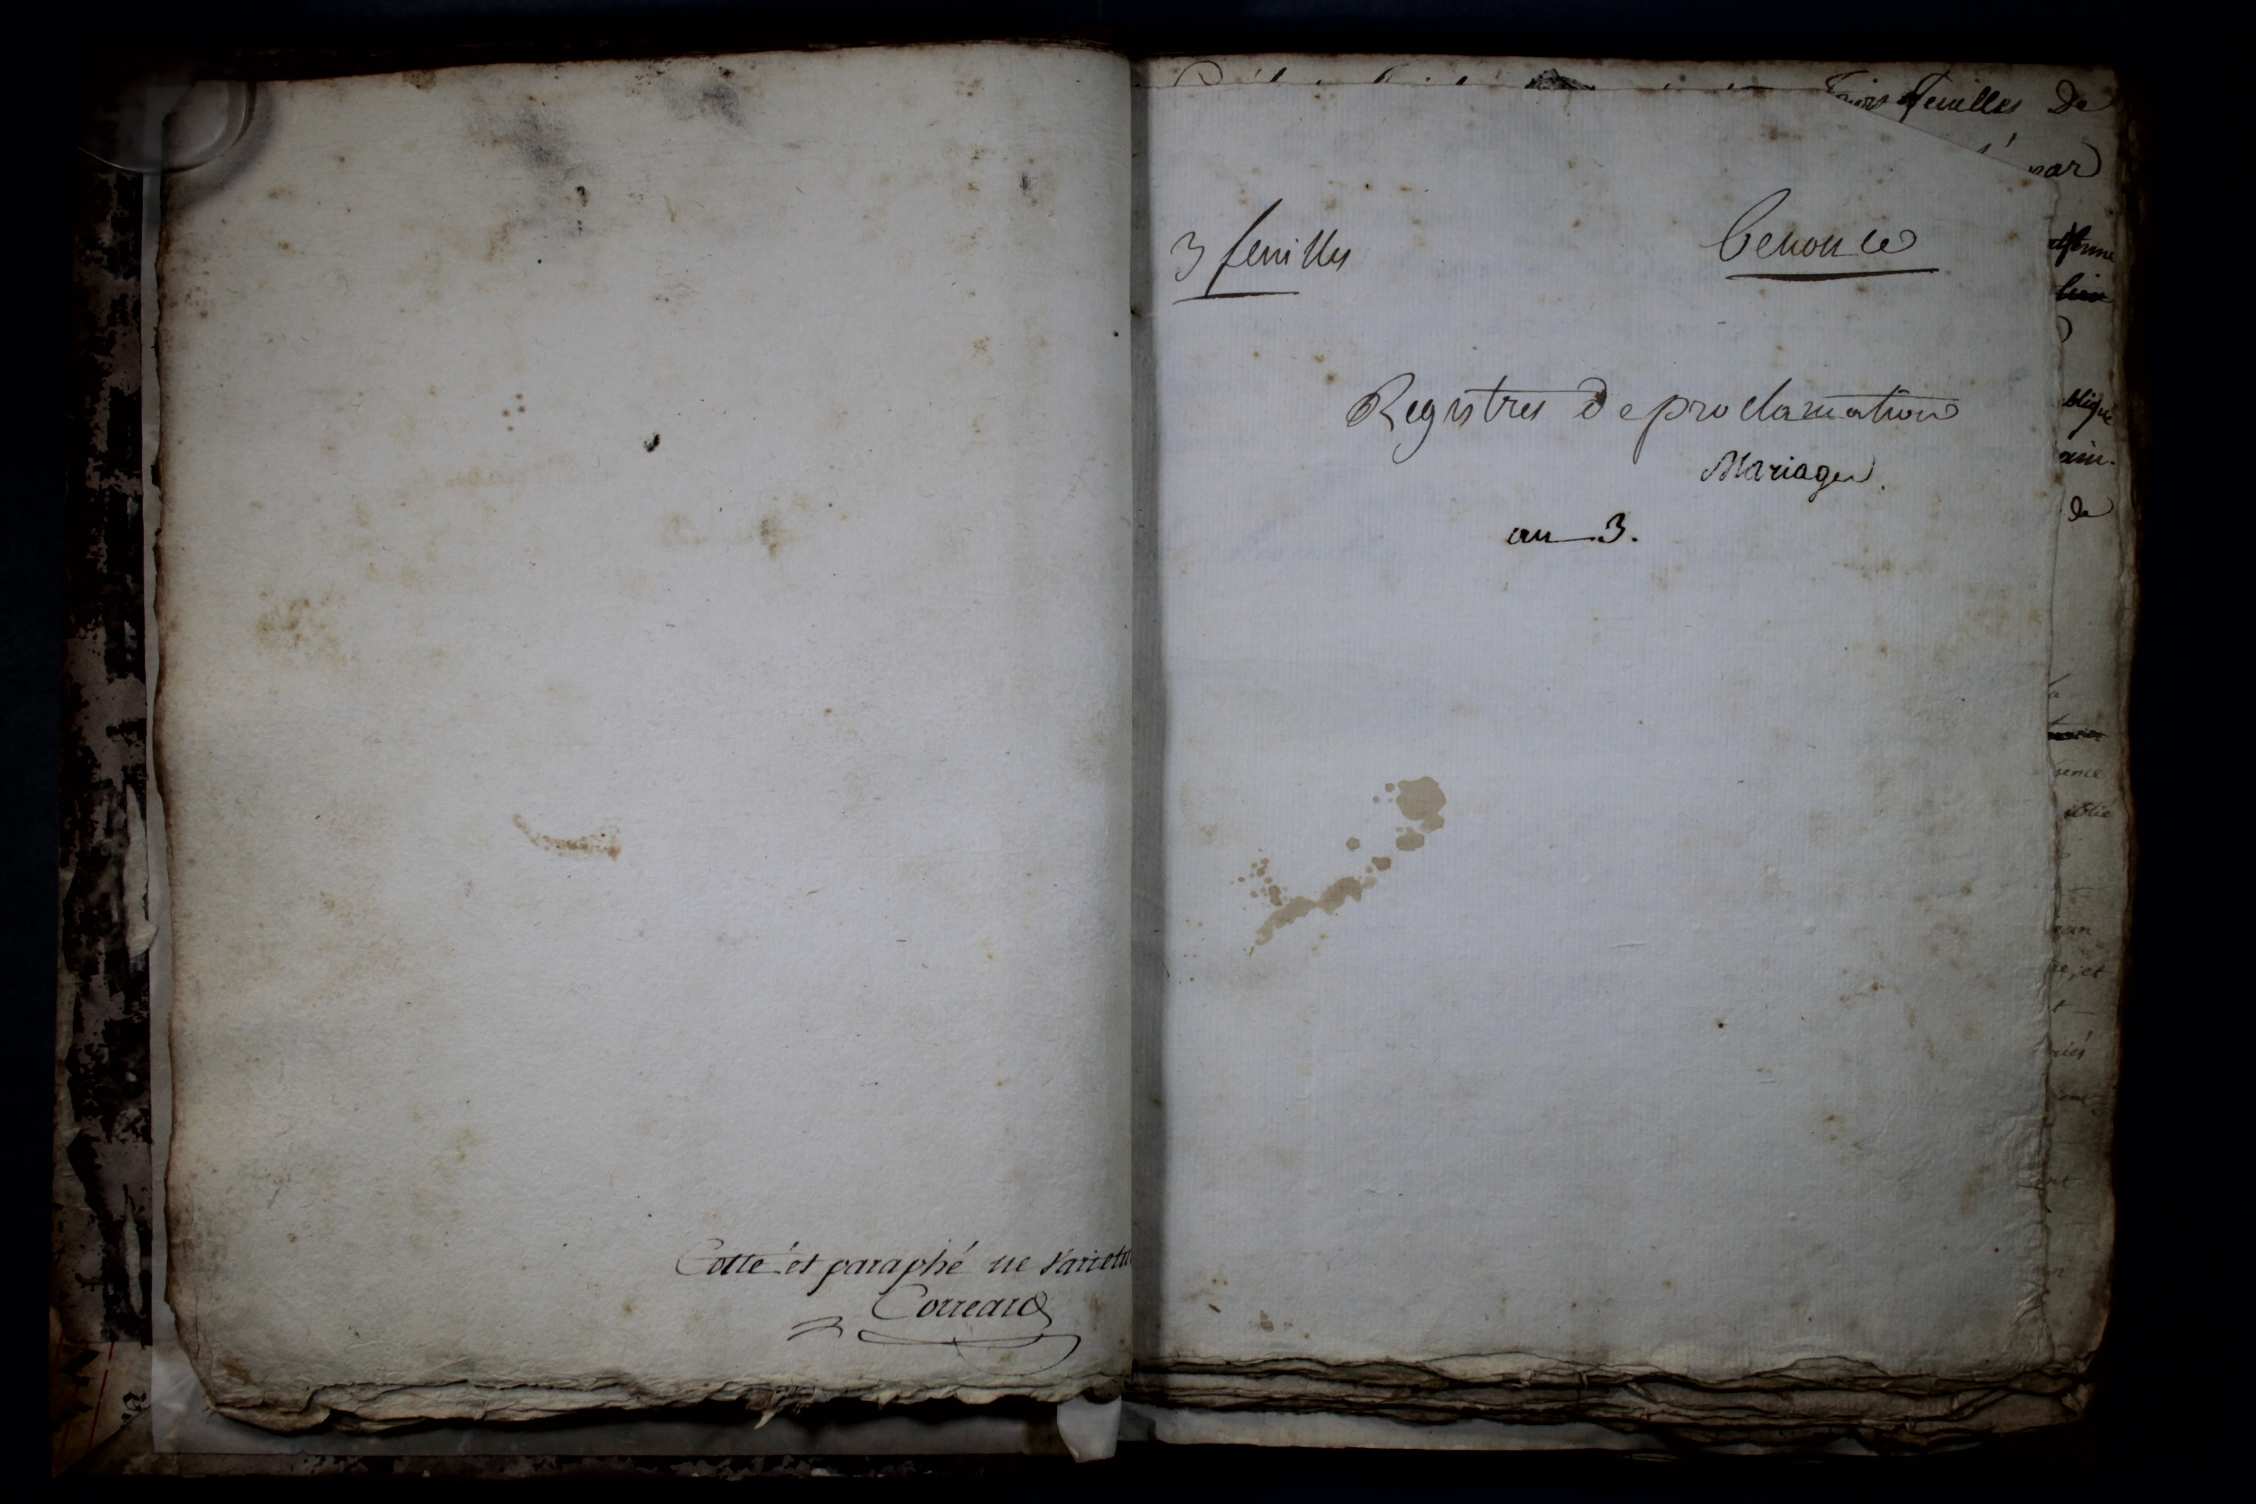 Cotté et paraphé ne varietur
Correard
3 feuilles
benonce
Registres de proclamation
Mariages.
an 3.
feuilles de
par
de